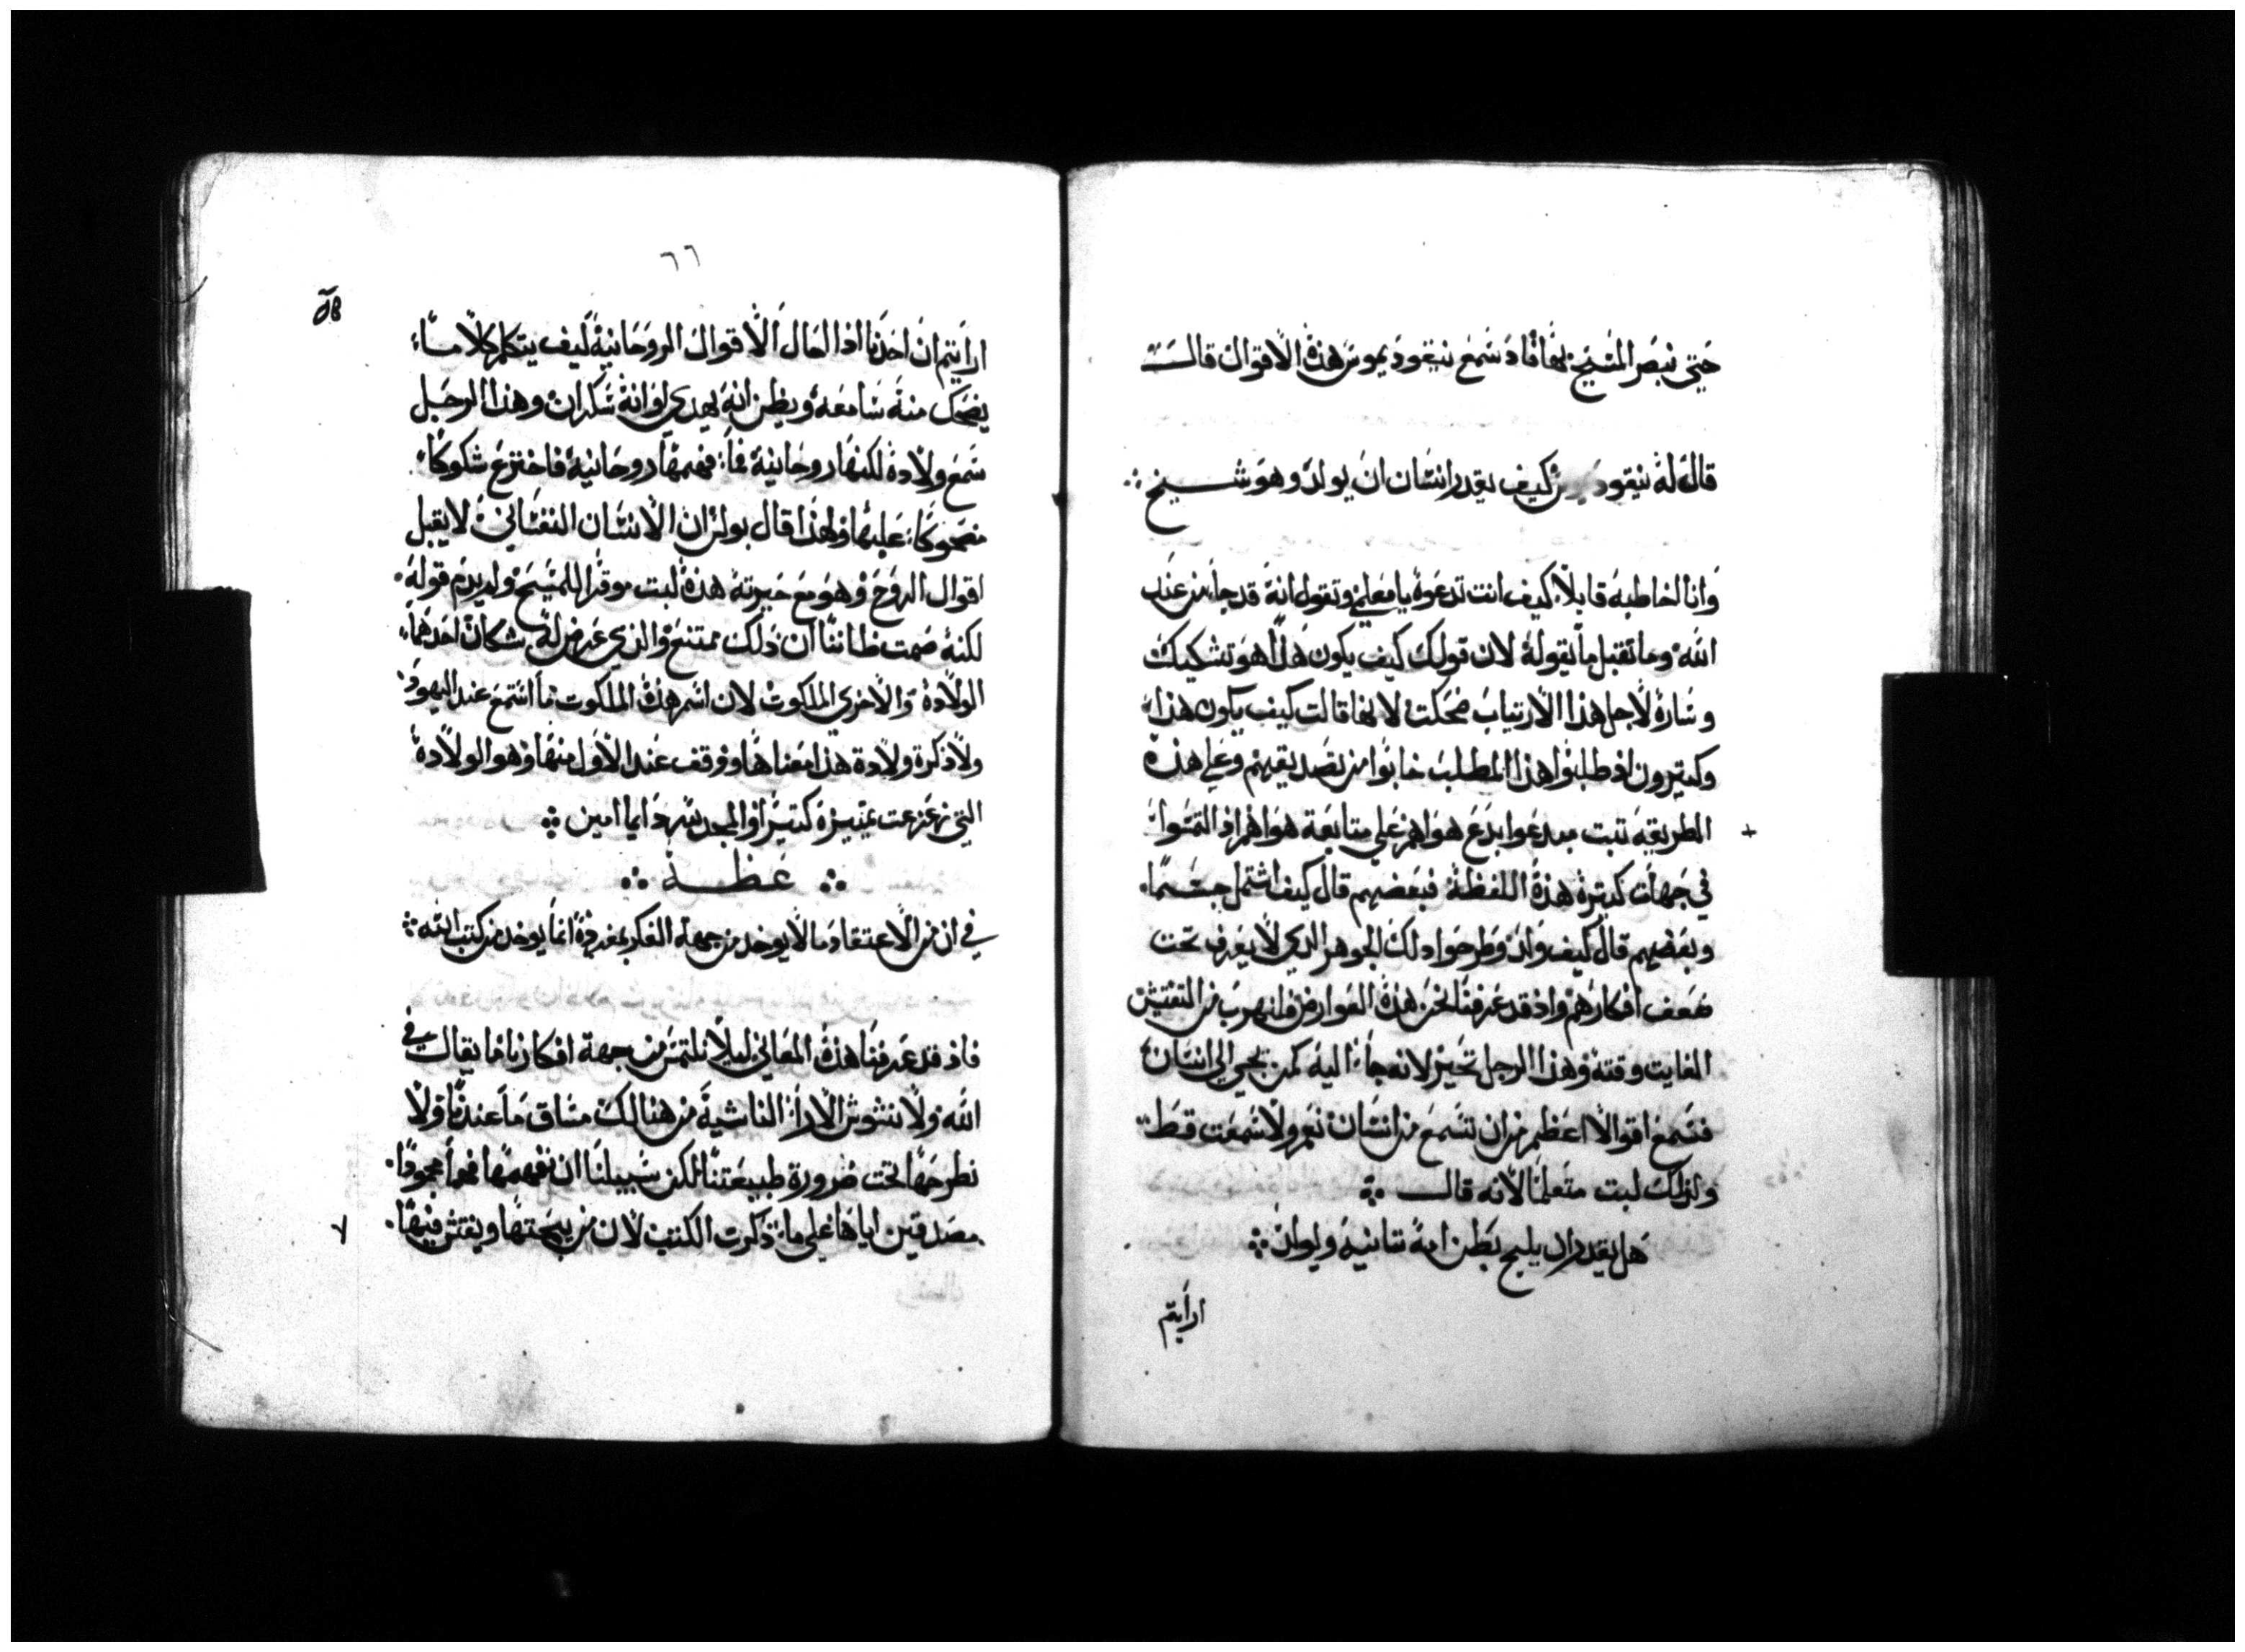 حتي نبصر المسيح بها فاذ سمع نيقوديموس هذه الاقوال قالت
قال له نيقود كيف يقدر انسان ان يولد وهو شيخ
وانا اخاطبه قايلا كيف انت تدعوه يا معلم وتقول انه قد جا من عند
الله وما تقبل ما يقوله لان قولك كيف يكون هذا هو تشكيك
وساره لاجل هذا الارتياب ضحكت لانها قالت كيف يكون هذا
وكثيرون اذ طلبوا هذا المطلب خابوا من تصديقهم وعلي هذه
الطريقه ثبت مبدعوا بدع هواهم علي متابعة هواهم اذ التمسوا
في جهات كثيرة هذه اللفظة فبعضهم قال كيف اشتمل جسما
وبعضهم قال كيف ولد وطرحوا ذلك الجوهر الذي لا يعرف تحت
ضعف افكارهم واذ قد عرفنا نحن هذه العوارض فلنهرب من التفتيش
الفايت وقته وهذا الرجل تحير لانه جا اليه كمن يجي الي انسان
فسمع اقوالا اعظم من ان تسمع من انسان نعم ولا سمعت قط
ولذلك لبث متعلما لانه قال
هل يقدر ان يلج بطن امه ثانيه ويولد
ارايتم
٦٦
ارايتم ان احدنا اذا الحال الاقوال الروحانية كيف يتكلم كلاما
يضحك منه سامعه ويظن انه يهدي او انه سكران وهذا الرجل
سمع ولادة لكنها روحانية فما فهمها روحانية فاخترع شكوكا
مضحوكا عليها ولهذا قال بولس ان الانسان النفساني لا يقبل
اقوال الروح وهو مع حيرته هذه لبث موقرا للمسيح ولم يذم قوله
لكنه صمت ظانا ان ذلك ممتنع والذي عرض له شكان احدهما
الولادة والاخري الملكوت لان اسم هذه الملكوت ما استمع عند اليهود
ولا ذكرة ولادة هذا معناها ووقف عند الاول منها وهو الولادة
التي زعزعت تمييزه كثيرا والمجد لله دايما امين
عظة
في ان من الاعتقاد ما لا يوخد من جهة الفكر بمفرده انما يوخد من كتب الله
فاذ قد عرفنا هذه المعاني ليلا نلتمس من جهة افكارنا ما يقال في
الله ولا نشوش الارا الناشية من هنالك مساق ما عندنا ولا
نطرحها تحت ضرورة طبيعتنا لكن سبيلنا ان نفهمها فهما محمودا
مصدقين اياها علي ما ذكرت الكتب لان من يبحثها ويفتش فيها